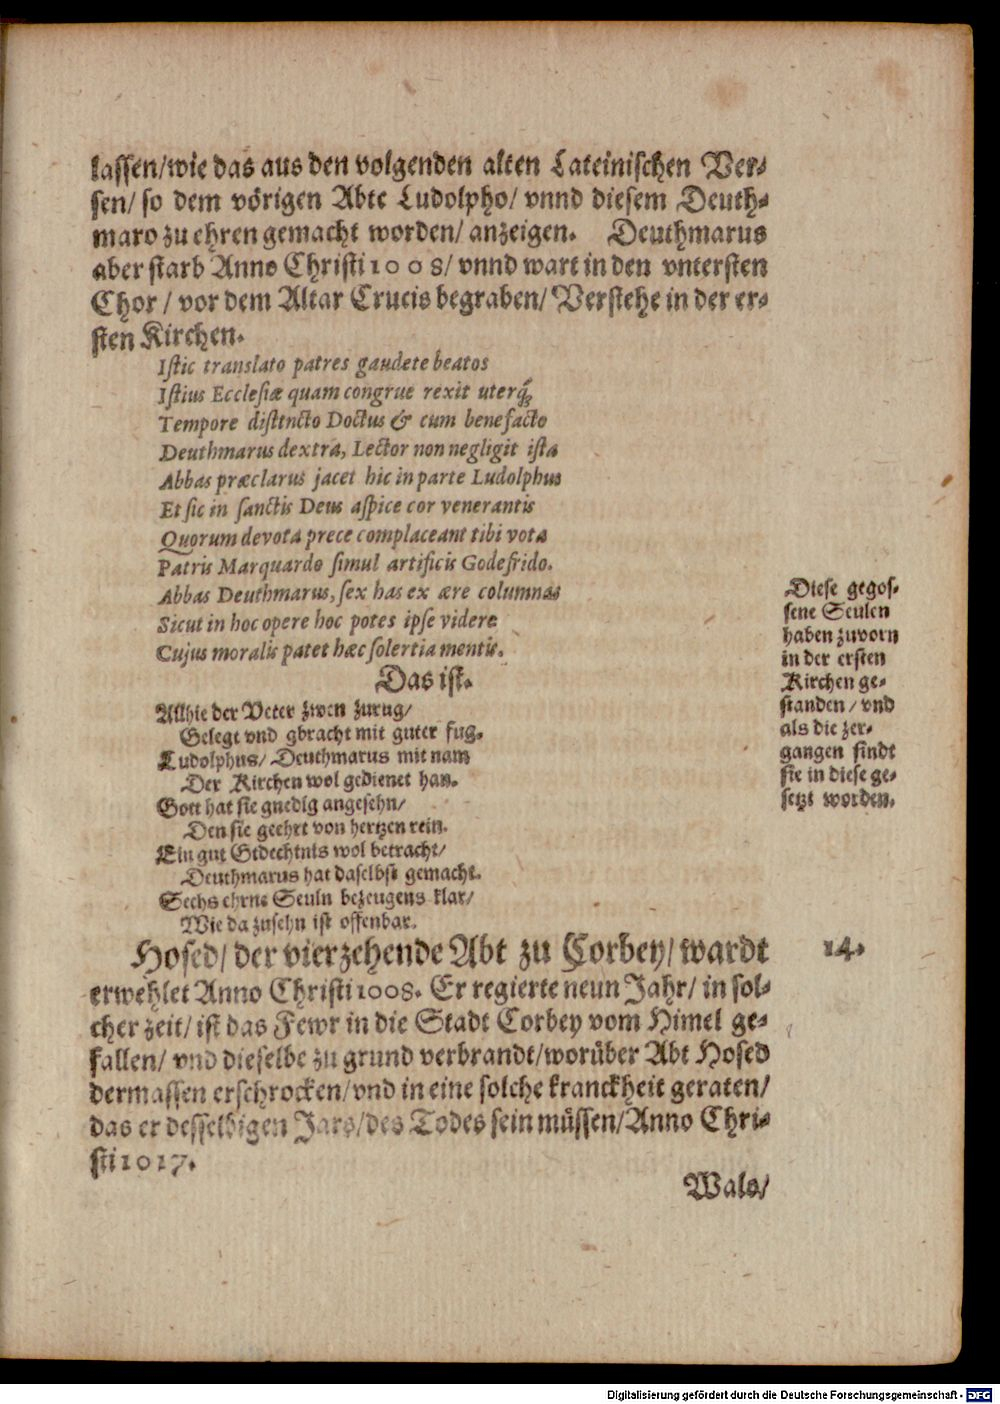 lassen/wie das aus den volgenden alten Lateinischen Ver-
sen/ so dem vörigen Abte Ludolpho/ vnnd diesem Deuth-
maro zu ehren gemacht worden/ anzeigen. Deuthmarus
aber starb Anno Christi 1008/ vnnd wart in den vntersten
Chor / vor dem Altar Crucis begraben/ Verstehe in der er-
sten Kirchen.
Istic translato patres gaudete beatos
Istius Ecclesiæ quam congrue rexit uterq́;
Tempore distincto Doctus & cum benefacto
Deuthmarus dextra, Lector non negligit ista
Abbas præclarus jacet hic in parte Ludolphus
Et sic in sanctis Deus aspice cor venerantis
Quorum devota prece complaceant tibi vota
Patris Marquardo simul artificis Godefrido.
Abbas Deuthmarus, sex has ex ære columnas
Sicut in hoc opere hoc potes ipse videre
Cujus moralis patet hæc solertia mentis.
Das ist.
Allhie der Veter zwen zurug/
Gelegt vnd gbracht mit guter fug.
Ludolphus/ Deuthmarus mit nam
Der Kirchen wol gedienet han.
Gott hat sie gnedig angesehn/
Den sie geehrt von hertzen rein.
Ein gut Gedechtnis wol betracht/
Deuthmarus hat daselbst gemacht.
Sechs ehrne Seuln bezeugens klar/
Wie da zusehn ist offenbar.
Diese gegos-
sene Seulen
haben zuvorn
in der ersten
Kirchen ge-
standen / vnd
als die zer-
gangen sindt
sie in diese ge-
setzt worden.
Hosed/ der vierzehende Abt zu Corbey/ wardt
14.
erwehlet Anno Christi 1008. Er regierte neun Jahr/ in sol-
cher zeit/ ist das Fewr in die Stadt Corbey vom Himel ge-
fallen/ vnd dieselbe zu grund verbrandt/worüber Abt Hosed
dermassen erschrocken/vnd in eine solche kranckheit geraten/
das er desselbigen Jars/des Todes sein müssen/Anno Chri-
sti 1017.
Wals/
Digitalisierung gefördert durch die Deutsche Forschungsgemeinschaft - DFG